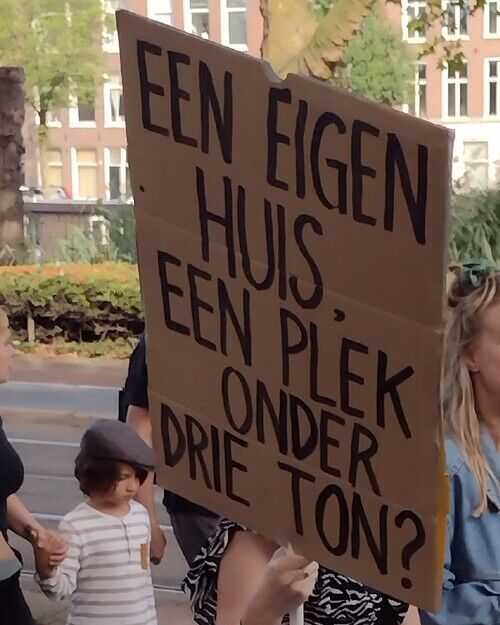 EEN EIGEN
HUIS,
EEN PLEK
ONDER
DRIE TON?